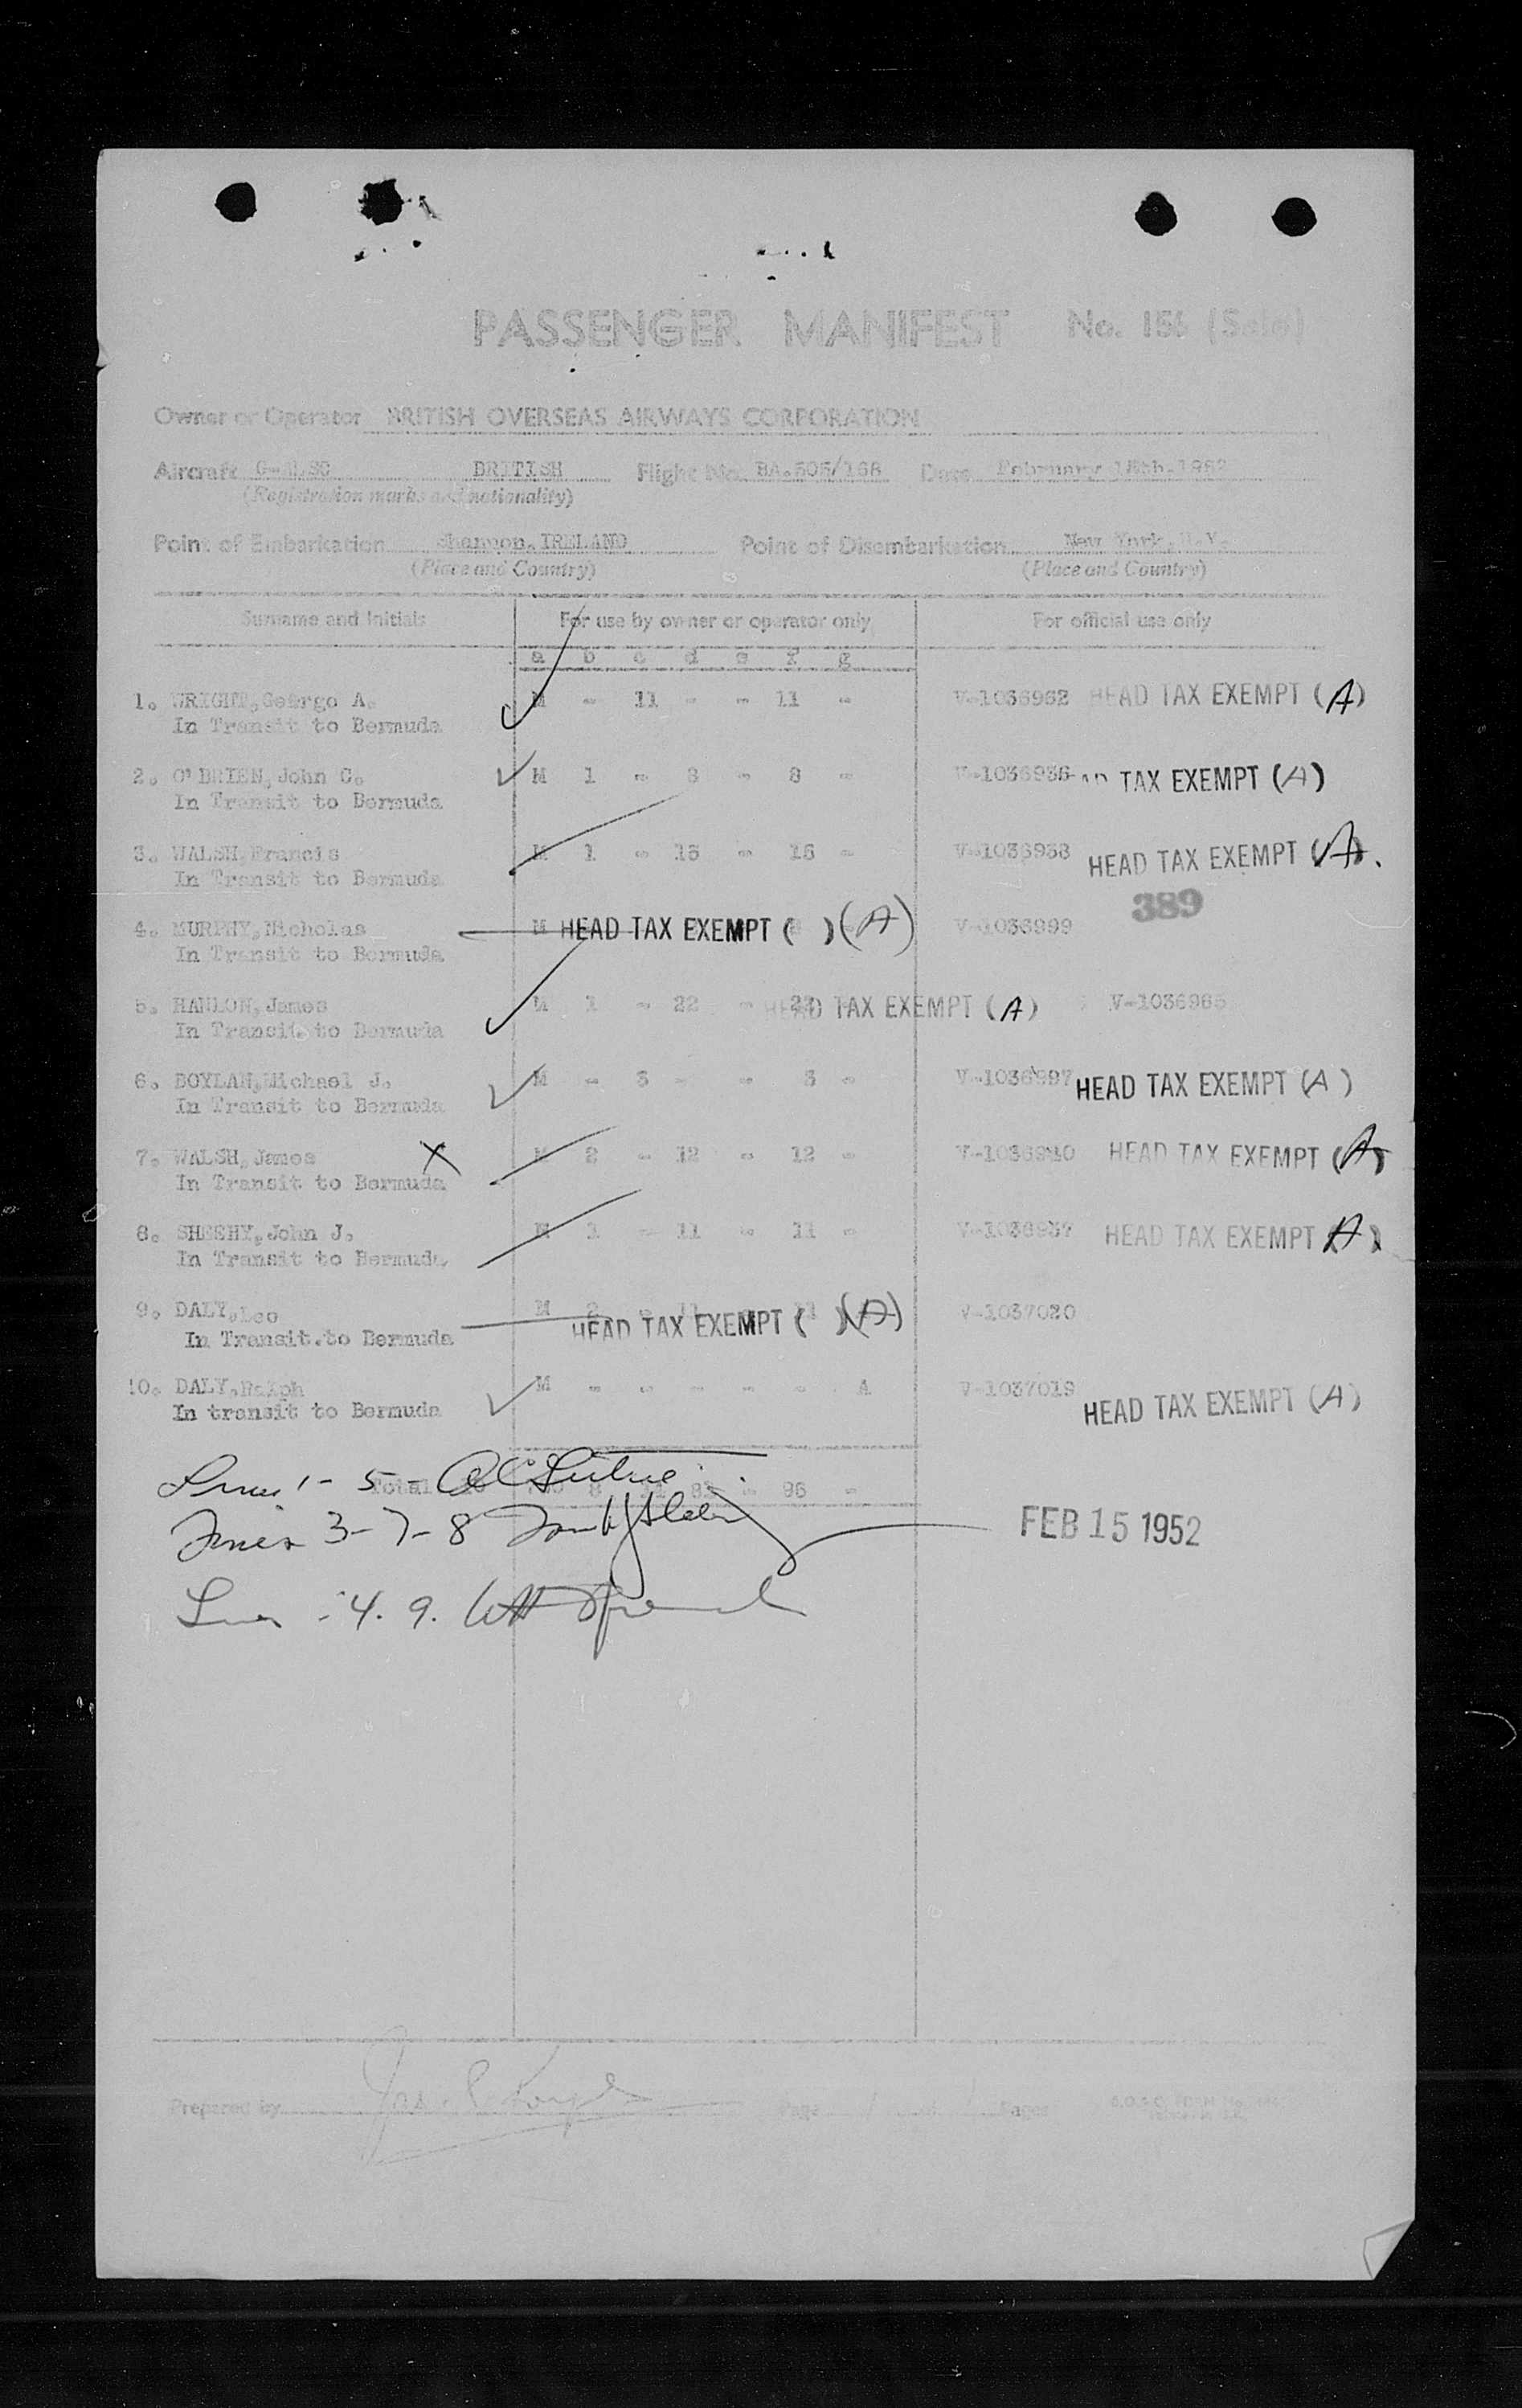 PASSENGER MANIFEST No. 156
Owner or Operator BRITISH OVERSEAS AIRWAYS CORPORATION
Aircraft G-ALSC BRITISH Flight No. BA.505/168 Date February 15th.1952
(Registration marks and nationality)
Point of Embarkation Shannon, IRELAND Point of Disembarkation New York, N.Y.
(Place and Country) (Place and Country)
Surname and Initials For use by owner or operator only For official use only
a b c d e f g
1. WRIGHT, George A. M - 11 - - 11 - V-1036962 HEAD TAX EXEMPT (A)
In Transit to Bermuda
2. O'BRIEN, John C. M 1 - 8 - 8 - V-1036936 TAX EXEMPT (A)
In Transit to Bermuda
3. WALSH, Francis M 1 - 15 - 15 - V-1036938 HEAD TAX EXEMPT (A)
In Transit to Bermuda
389
4. MURPHY, Nicholas M HEAD TAX EXEMPT ( ) (A) V-1036999
In Transit to Bermuda
5. HANLON, James M 1 - 22 - 22 HEAD TAX EXEMPT (A) V-1036965
In Transit to Bermuda
6. BOYLAN, Michael J. M - 3 - - 3 - V-1036997 HEAD TAX EXEMPT (A)
In Transit to Bermuda
7. WALSH, James X M 2 - 12 - 12 - V-1036940 HEAD TAX EXEMPT (A)
In Transit to Bermuda
8. SHEEHY, John J. M 1 - 11 - 11 - V-1036937 HEAD TAX EXEMPT (A)
In Transit to Bermuda
9. DALY, Leo M 2 - 11 HEAD TAX EXEMPT ( ) (A) V-1037020
In Transit to Bermuda
10. DALY, Ralph M - - - - - A V-1037019 HEAD TAX EXEMPT (A)
In transit to Bermuda
1 - 5 -
Total 96 -
3-7-8
FEB 15 1952
4. 9.
Prepared by Page Pages